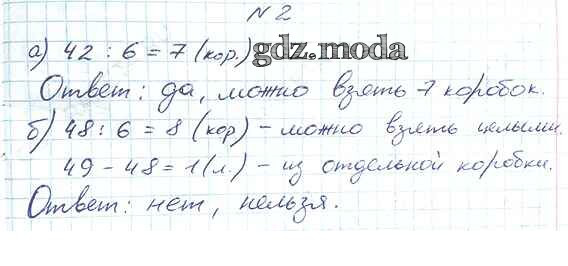 № 2
а) 42 : 6 = 7 (кор.) gdz.moda
Ответ: да, можно взять 7 коробок.
б) 48 : 6 = 8 (кор) - можно взять целыми.
49 - 48 = 1 (л.) - из отдельной коробки.
Ответ: нет, нельзя.